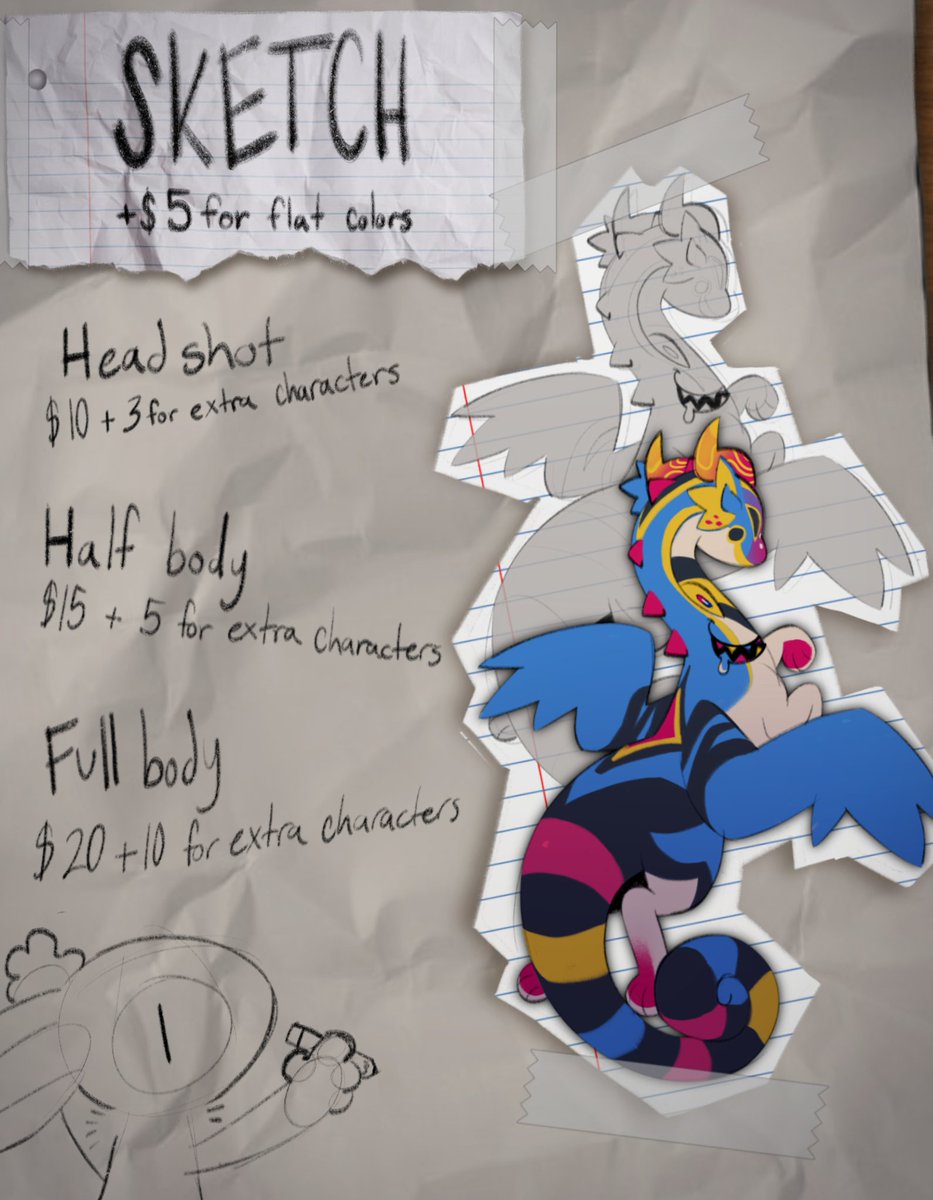 SKETCH
+$5 for flat colors
Head shot
$10 + 3 for extra characters
Half body
$15 + 5 for extra characters
Full body
$20 +10 for extra characters